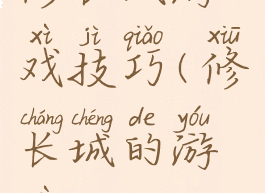 xì jì qiǎo xiū
戏技巧(修
cháng chéng de yóu
长城的游